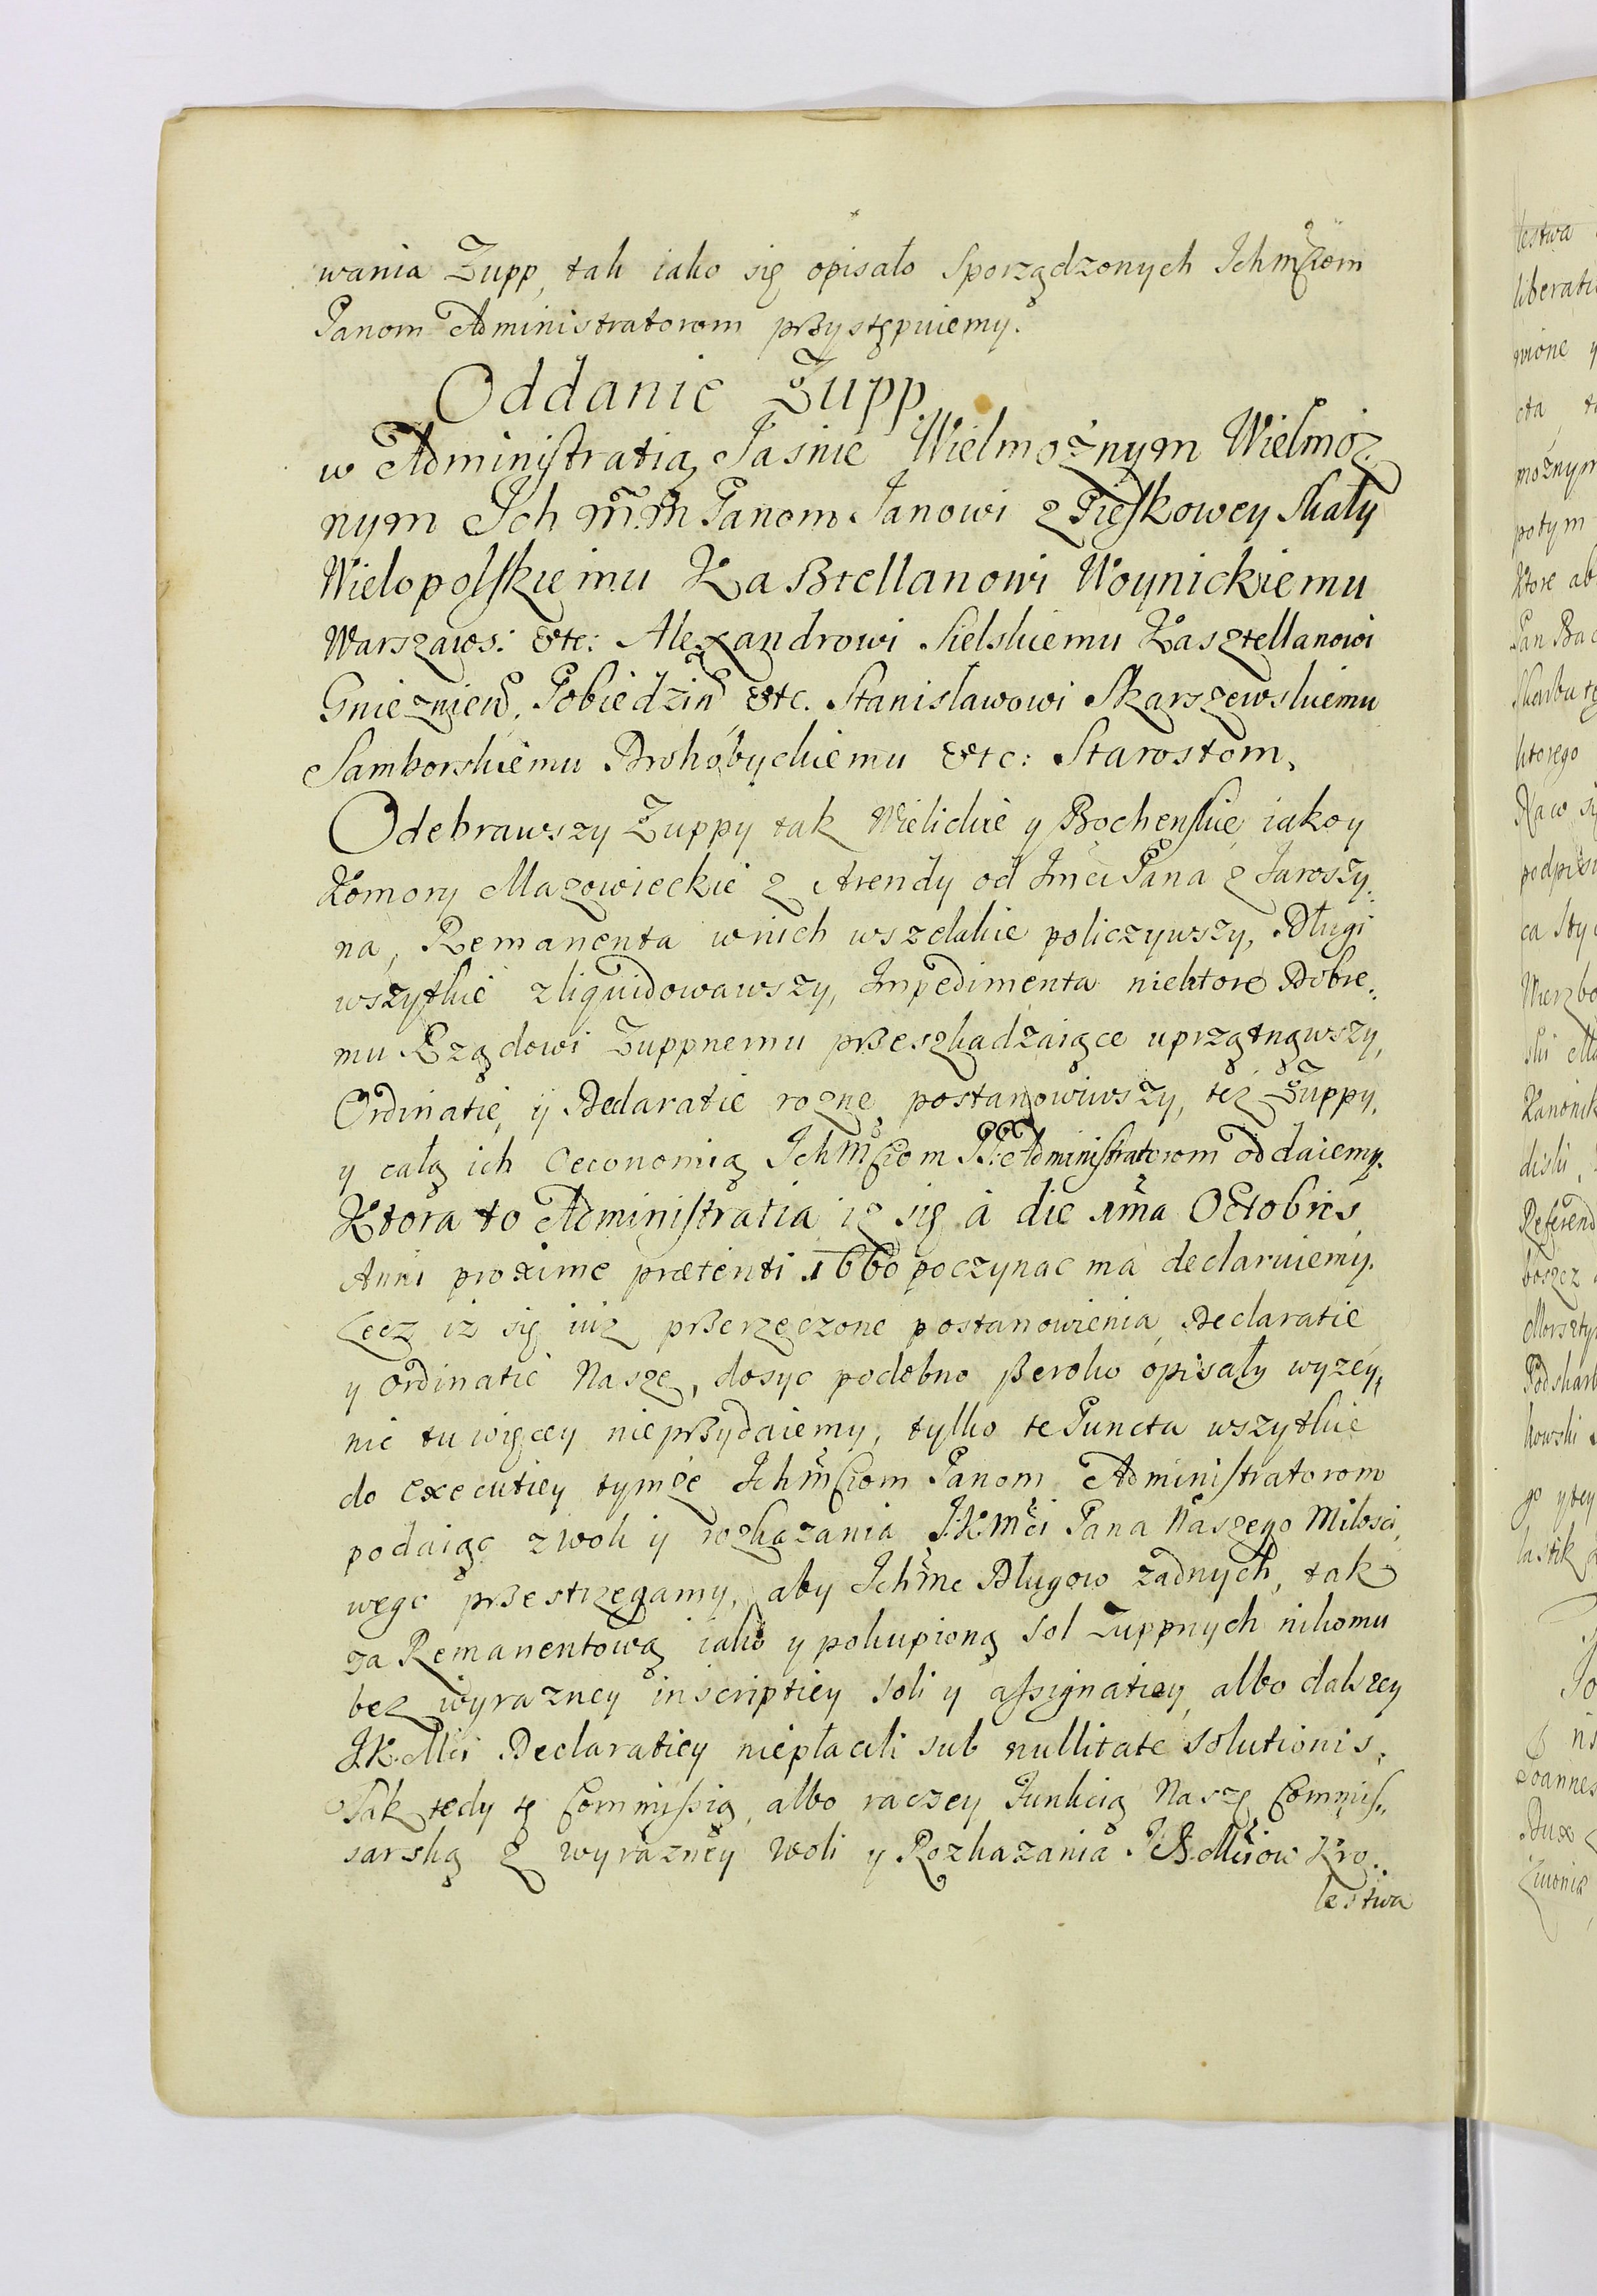 wania Zupp, tak iako się opisało Sporządzonych Ichmściom
Panom Administratorom przystępuiemy.
Oddanie Zupp
w Administratią Jasnie Wielmożnym Wielmoż
nym Ich mm Panom Janowi z Pieskowey Skały
Wielopolskiemu Kaßtellanowi Woynickiemu
Warszaws: &tc: Alexandrowi Sielskiemu Kasztellanowi
Gnieznień, Pobiedziń &tc. Stanisławowi Skarszewskiemu
Samborskiemu Drohobyckiemu &tc: Starostom,
Odebrawszy Zuppy tak Wielickie y Bochenskie iako y
Komory Mazowieckie z Arendy od Jmći Pana z Jaroszy,
na, Remanenta wnich wszelakie policzywszy, Długi
wszytkie zliquidowawszy, Impedimenta niektore Dobre,
mu Rządowi Zuppnemu przeszkadzaiące uprzątnąwszy,
Ordinatie, y Declaratie rozne postanowiwszy, też Zuppy,
y całą ich Oeconomią Ichmściom PP. Administratorom oddaiemy.
Ktora to Administratia iz się à die 1ma Octobris
Anni proxime præteriti 1660 poczynac ma declaruiemy.
Lecz iz się iuz przerzeczone postanowienia, Declaratie
y Ordinatie Nasze, dosyc podobno szeroko opisały wyzey,
nic tu więcey nieprzydaiemy, tylko te Puncta wszytkie
do executiey tymże Ichmściom Panom Administratorom
podaiąc z woli y rozkazania J.K.Mći Pana Naszego Miłosci,
wego przestrzegamy, aby Ichmc Długow zadnych, tak
za Remanentową iako y pokupioną sol Zuppnych nikomu
bez wyrazney inscriptiey soli y assignatiey albo dalszey
J.K.Mći Declaratiey niepłacili sub nullitate solutionis,
Tak tedy tę Commissią, albo raczey Funkcią Naszę Commis,,
sarską z wyrazney woli y Rozkazania Kro..
lestwa